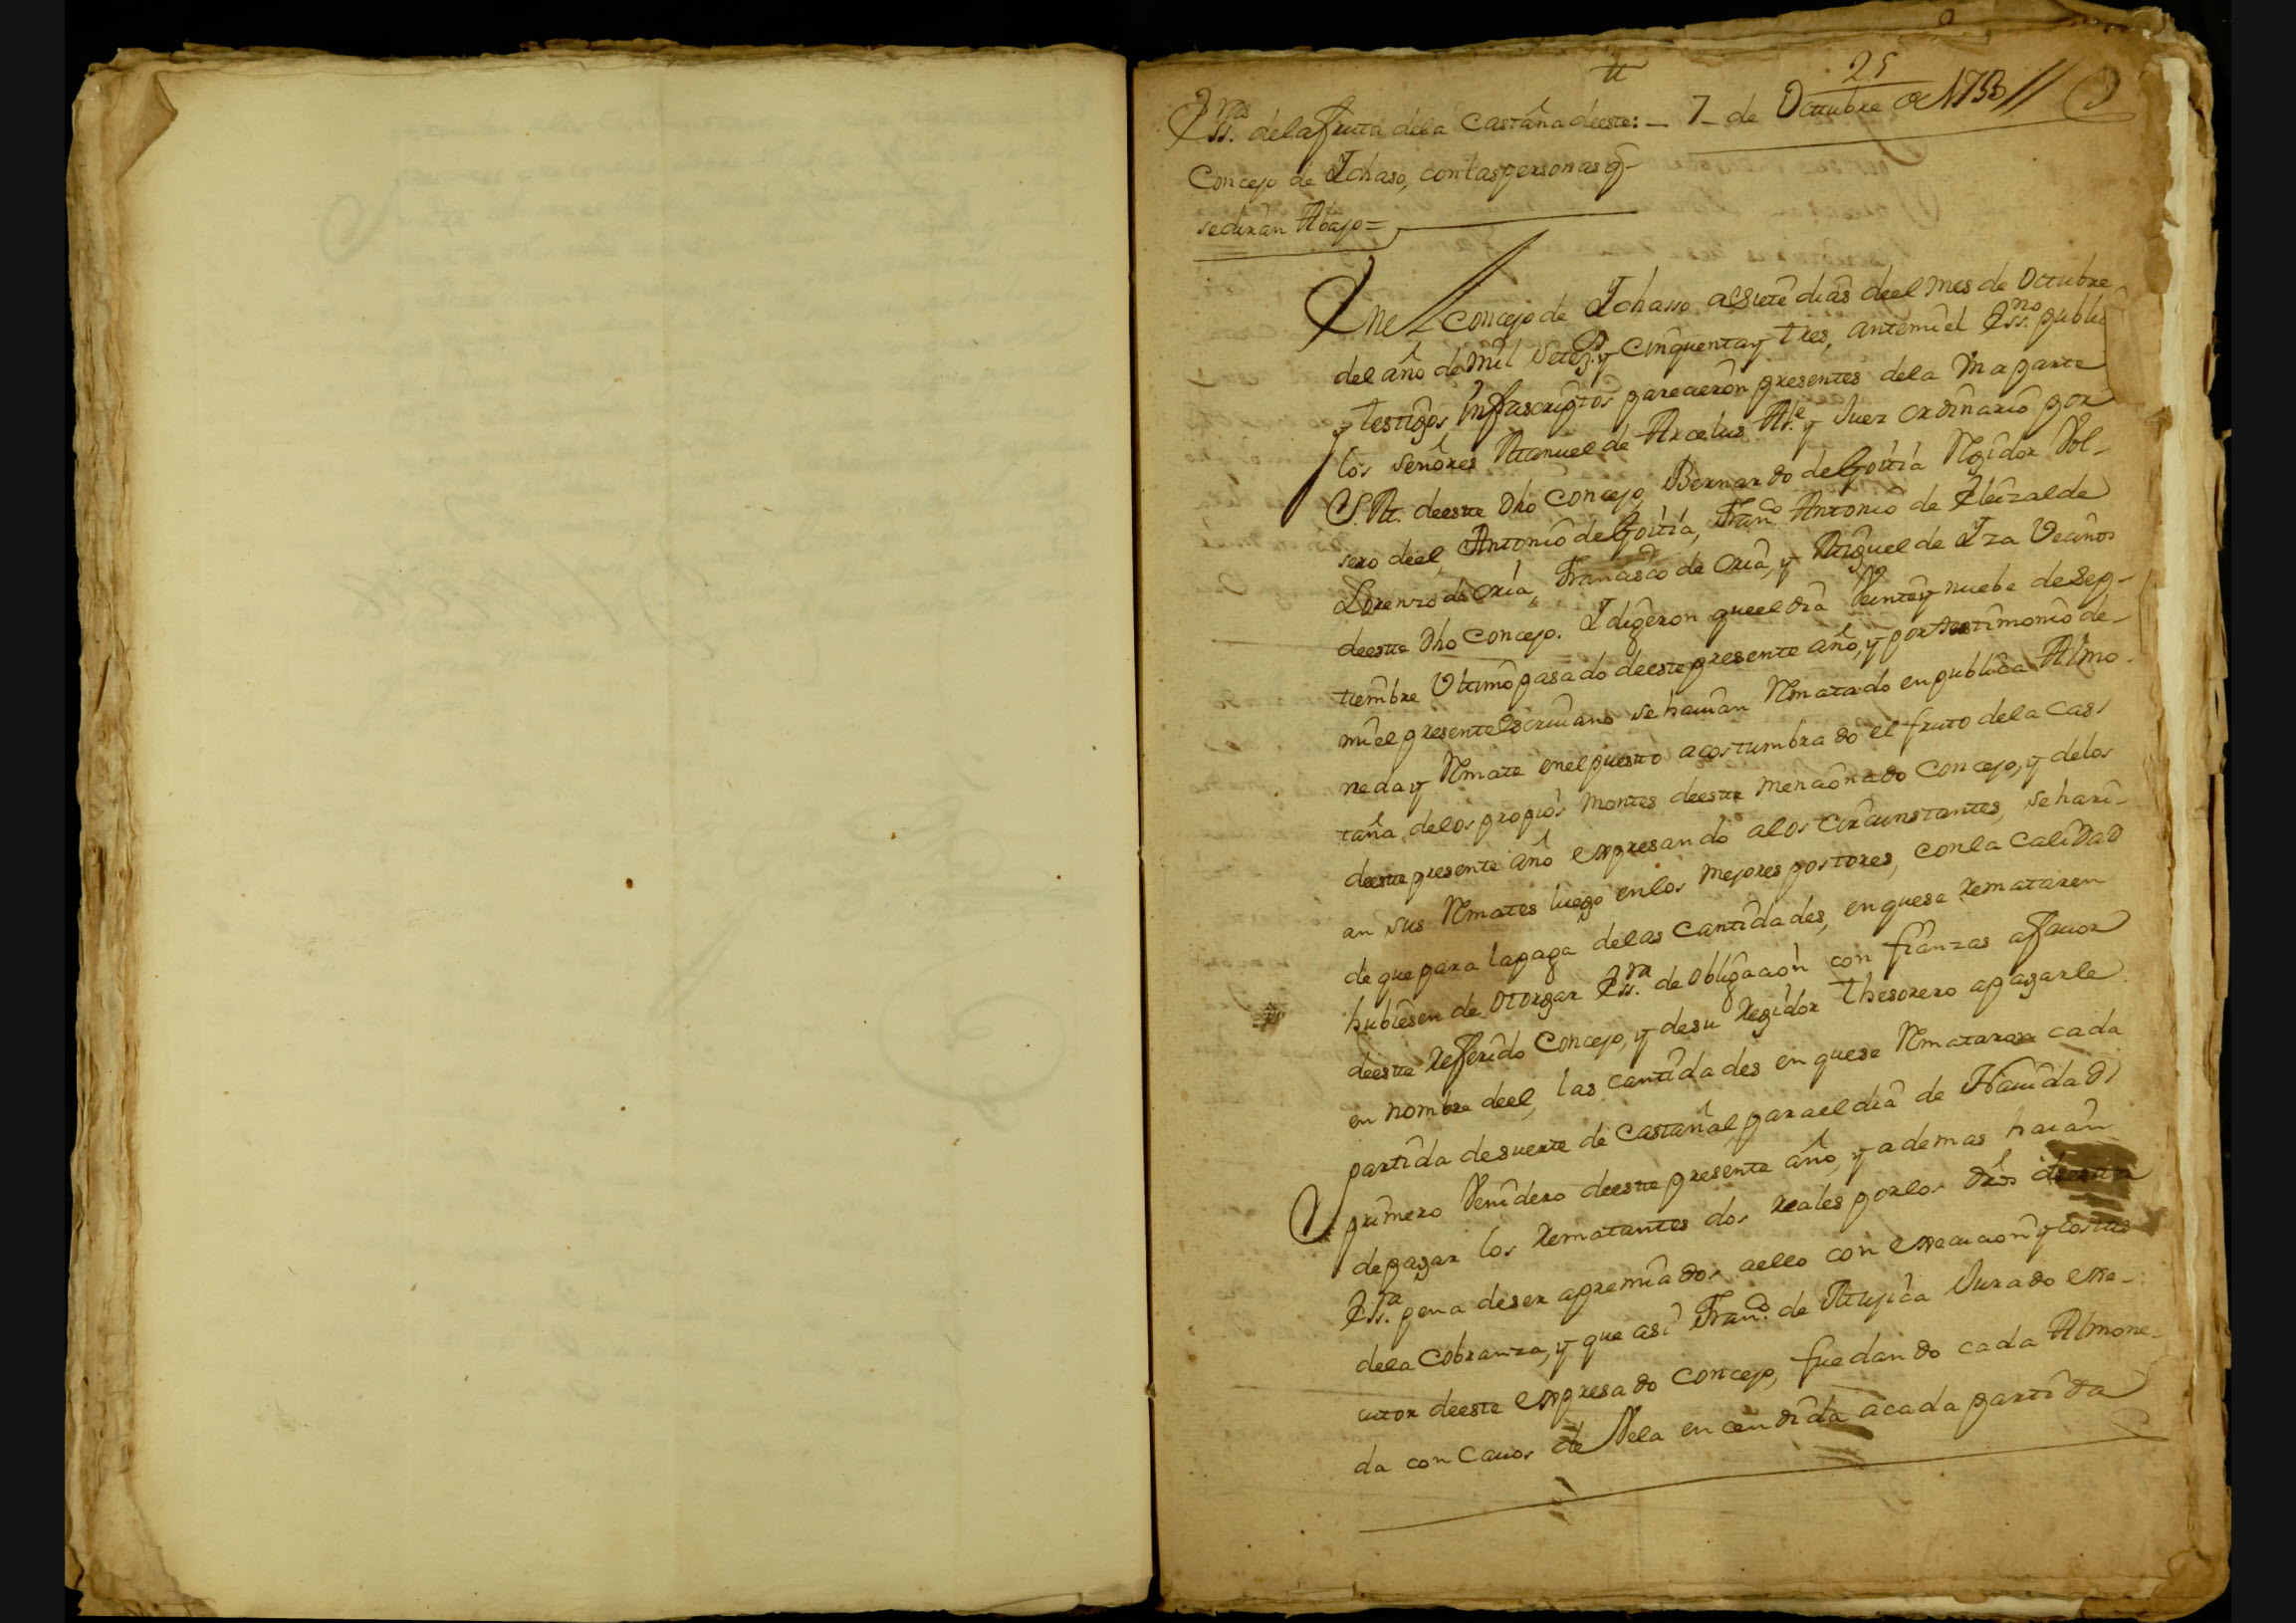 25
Ess.ras dela fruta dela Castaña deeste: — 7 — de Octubre de 1753//
Concejo de Ichaso, con las personas q̄
se diràn Abajo =
Enel Concejo de Ichasso a Siete dias deel mes de Octubre
del año de mil Setez.s y cinquenta y tres, ante mi el Ess.no publi
y testigos infrascriptos parecieron presentes dela vna parte
los señores Manuel de Arcelus Al.e y Juez ordinario por
S. M. deeste dho Concejo, Bernardo de Goitia Regidor Vol-
sero deel, Antonio de Goitia, Fran.co Antonio de Eleizalde
Lorenzo de Oria, Francisco de Oria, y Miguel de Iza Vecinos
deeste dho Concejo. I digeron que el dia Veinte y nuebe de Sep-
tiembre Vltimo pasado deeste presente año, y por testimonio de-
mi el presente escriuano se hauian Rematado en publica Almo-
neda y Remate en el puesto acostumbrado el fruto dela Cas-
taña, delos propios montes deeste mencionado Concejo, y delos
deeste presente año expresando alos circunstantes, se hari-
an sus Remates luego en los mejores postores, con la calidad
de que para la paga delas Cantidades, en que se remataren
hubiesen de otorgar Ess.ra de obligacion con fianzas a ffauor
deeste refferido Concejo, y de su regidor thesorero a pagarle
en nombre deel, las cantidades en que se Remataron cada
partida de suerte de Castañal para el dia de Nauidad
primero Venidero deeste presente año, y ademas hauian
de pagar los rematantes dos reales por los dros deesta
Ess.ra pena de ser apremiados a ello con execucion y costas
dela Cobranza, y que asi Fran.co de Mujica Jurado exe-
cutor deeste expresado Concejo, fue dando cada Almone-
da con Cauos de Vela encendida a cada partida